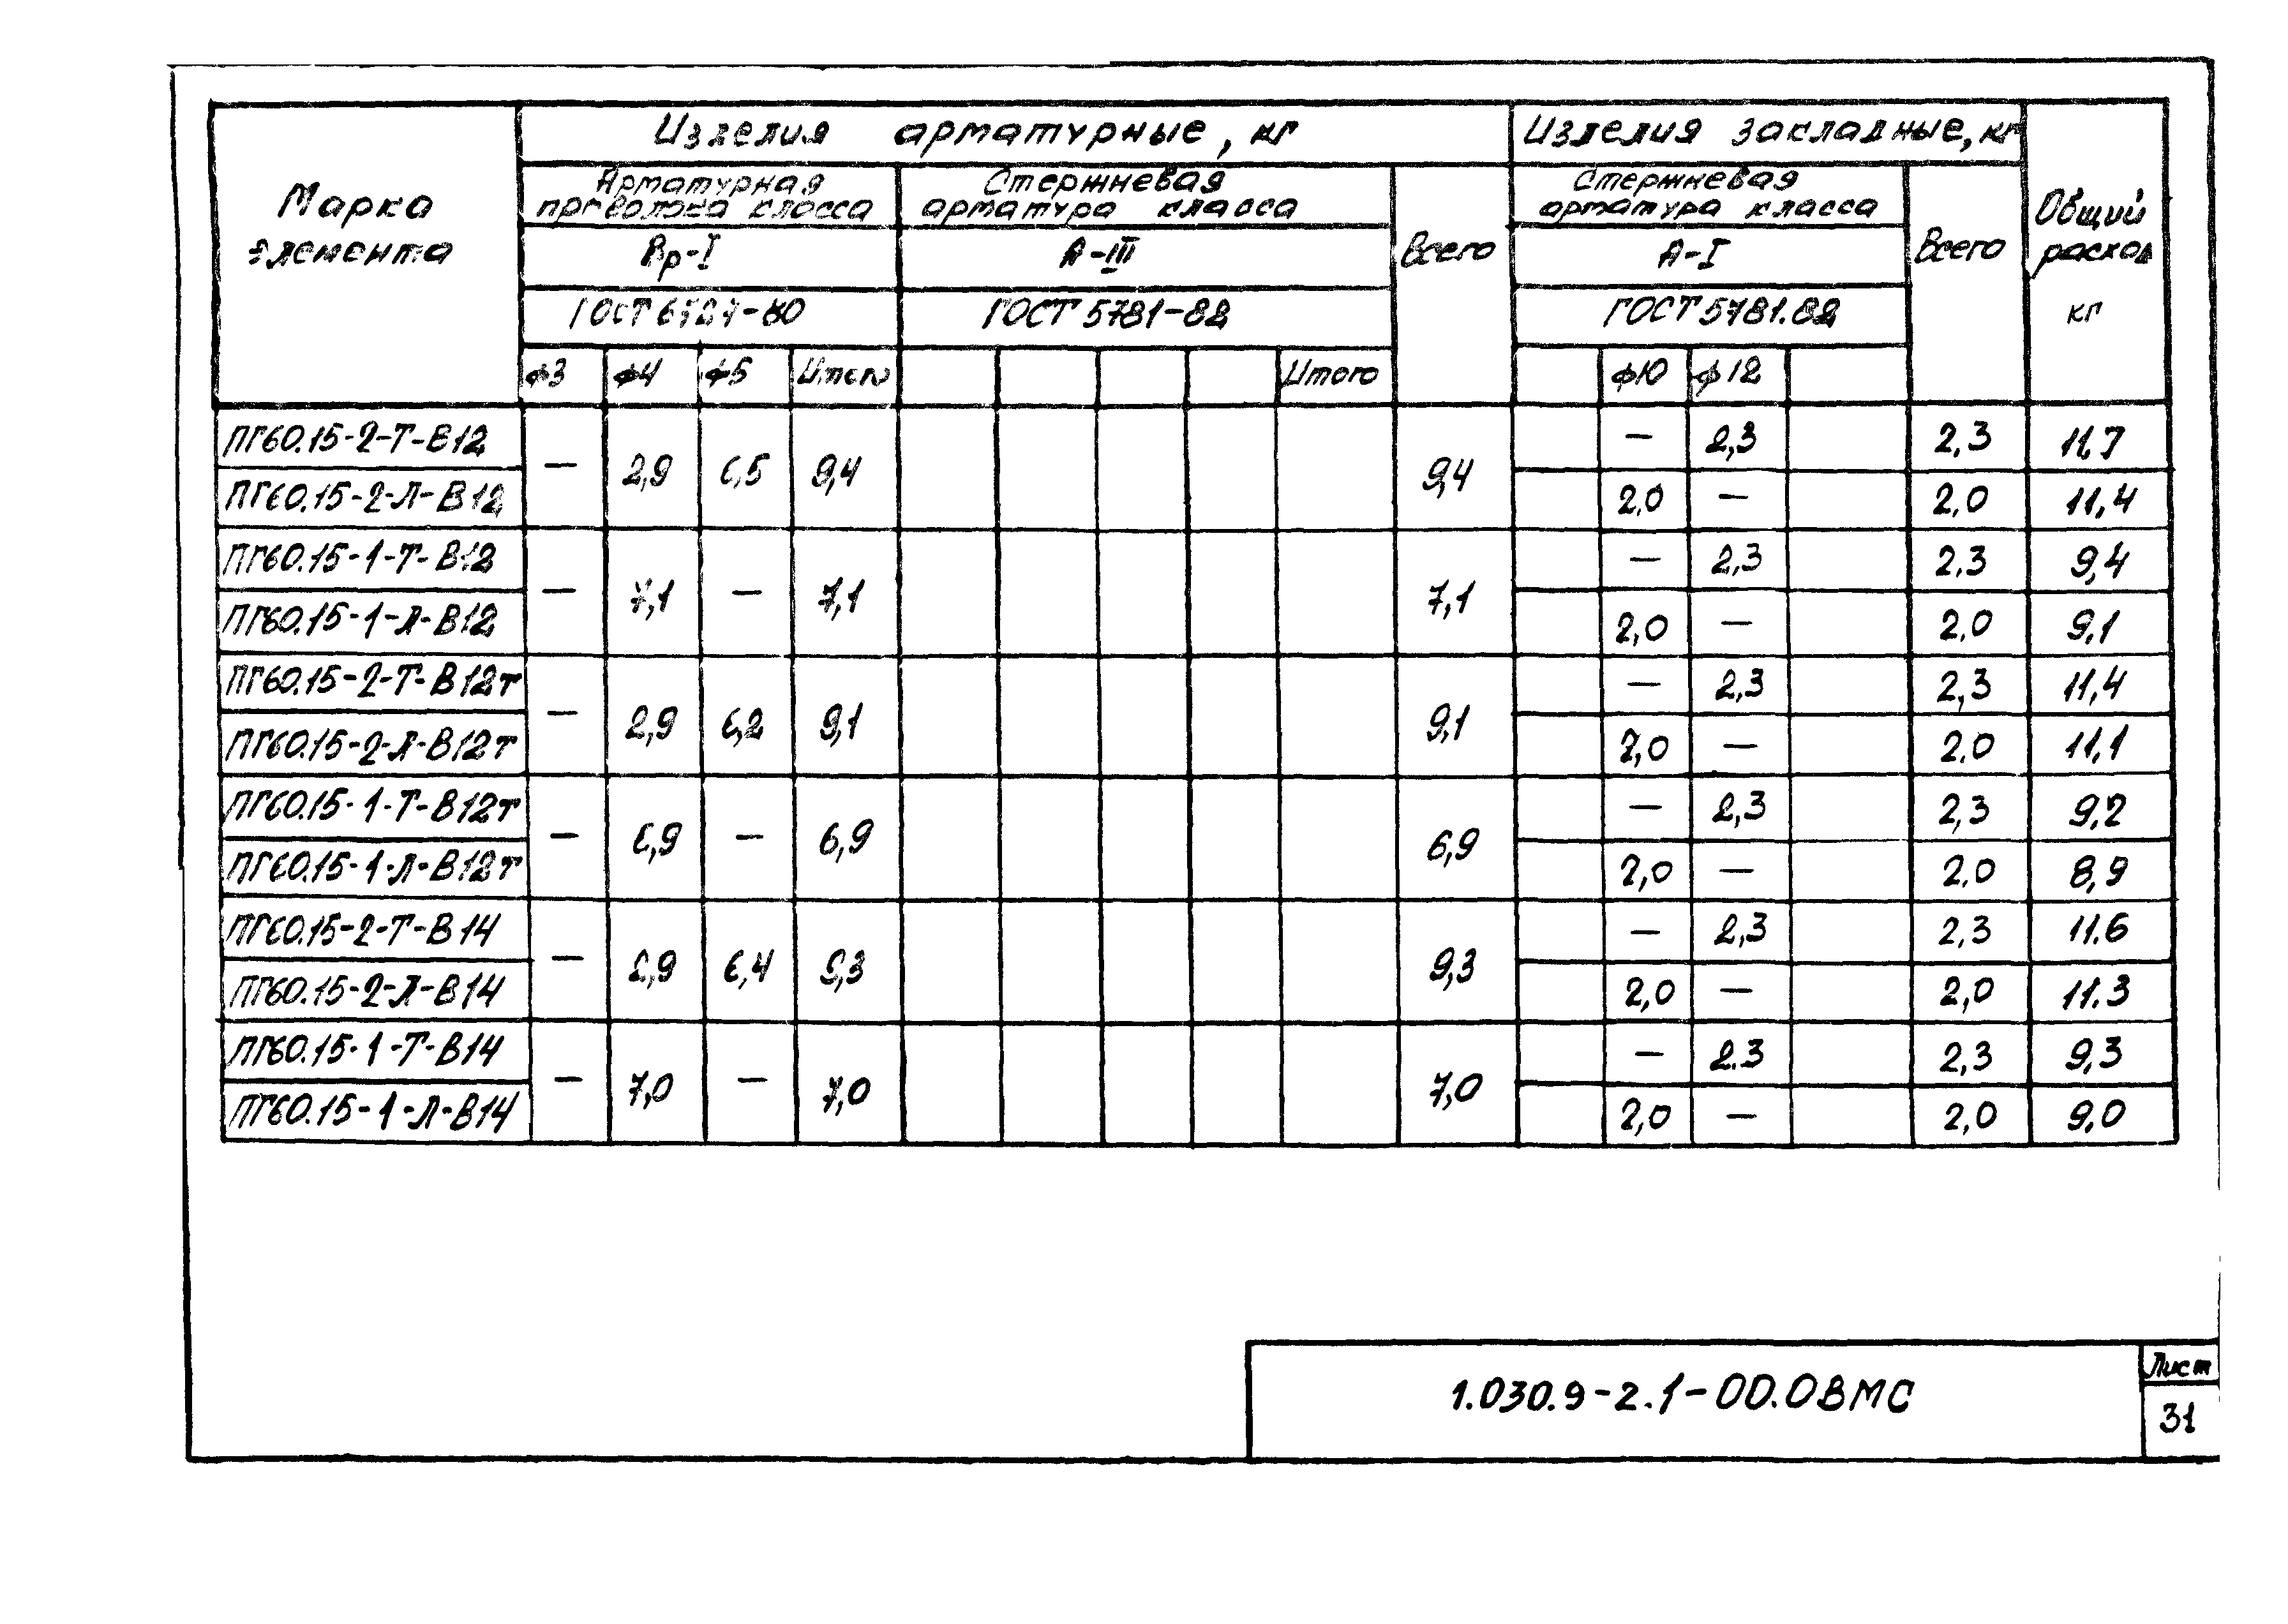 Марка элемента
Изделия арматурные, кг
Изделия закладные, кг
Общий расход кг
Арматурная проволока класса
Стержневая арматура класса
Всего
Стержневая арматура класса
Всего
Вр-I
А-III
А-I
ГОСТ 6727-80
ГОСТ 5781-82
ГОСТ 5781.82
ф3 ф4 ф5 Итого Итого ф10 ф12
ПГ60.15-2-Т-В12 — 2,9 6,5 9,4 9,4 — 2,3 2,3 11,7
ПГ60.15-2-Л-В12 2,0 — 2,0 11,4
ПГ60.15-1-Т-В12 — 7,1 — 7,1 7,1 — 2,3 2,3 9,4
ПГ60.15-1-Л-В12 2,0 — 2,0 9,1
ПГ60.15-2-Т-В12т — 2,9 6,2 9,1 9,1 — 2,3 2,3 11,4
ПГ60.15-2-Л-В12т 2,0 — 2.0 11,1
ПГ60.15-1-Т-В12т — 6,9 — 6,9 6,9 — 2,3 2,3 9,2
ПГ60.15-1-Л-В12т 2,0 — 2.0 8,9
ПГ60.15-2-Т-В14 — 2,9 6,4 9,3 9,3 — 2,3 2,3 11.6
ПГ60.15-2-Л-В14 2,0 — 2,0 11.3
ПГ60.15-1-Т-В14 — 7,0 — 7,0 7,0 — 2.3 2,3 9,3
ПГ60.15-1-Л-В14 2,0 — 2,0 9,0
1.030.9-2.1-00.0ВМС
Лист
31